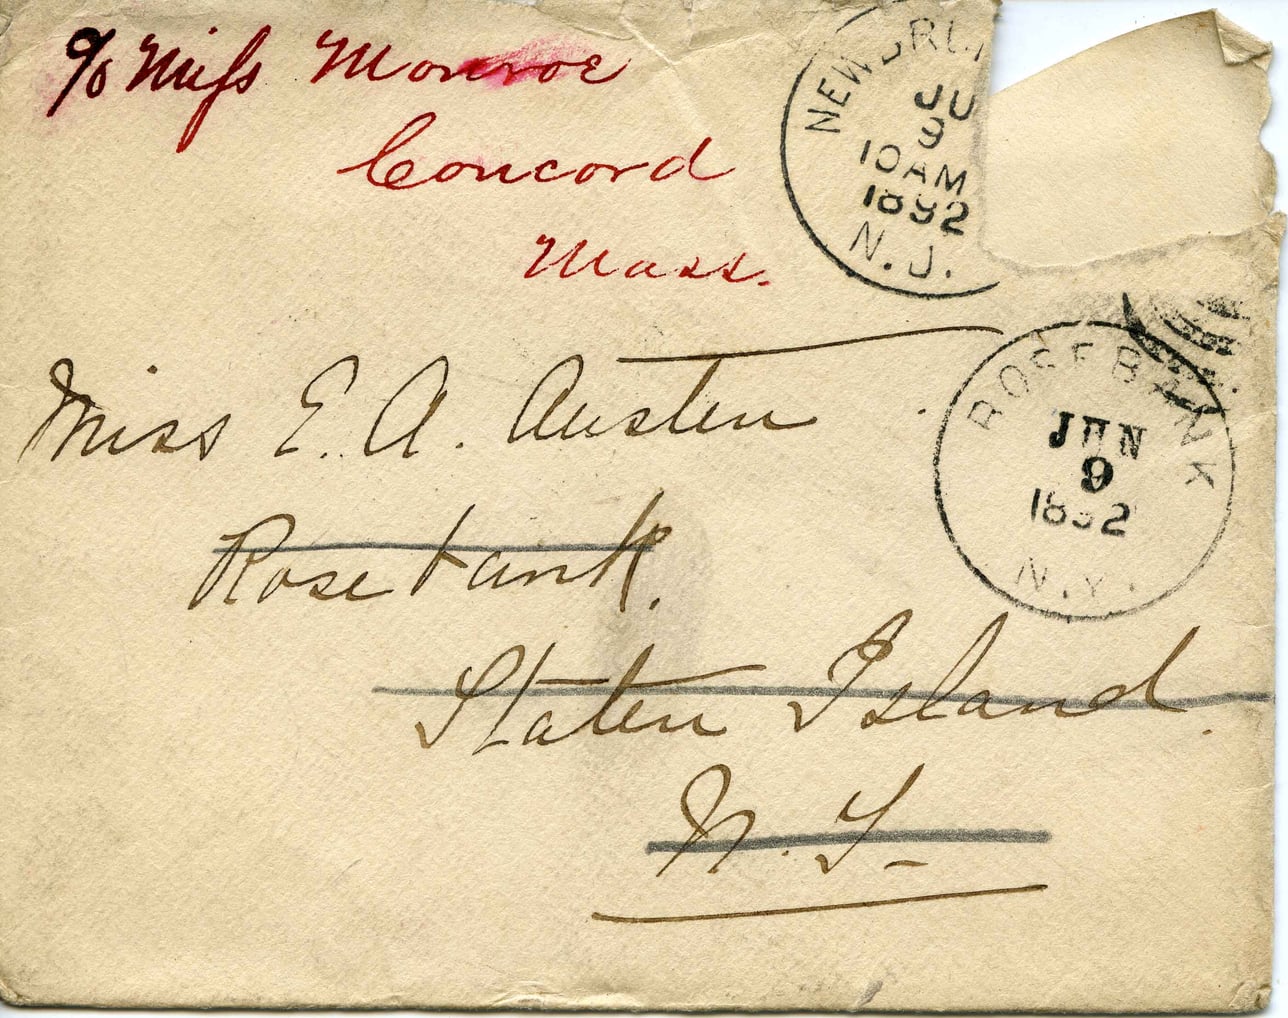 c/o Miss Monroe
Concord
Mass.
NEW BRU
JU
9
10 AM
1892
N.J.
Miss E. A. Austen
Rosebank.
Staten Island.
N.Y.
ROSEBANK
JUN
9
1892
N.Y.